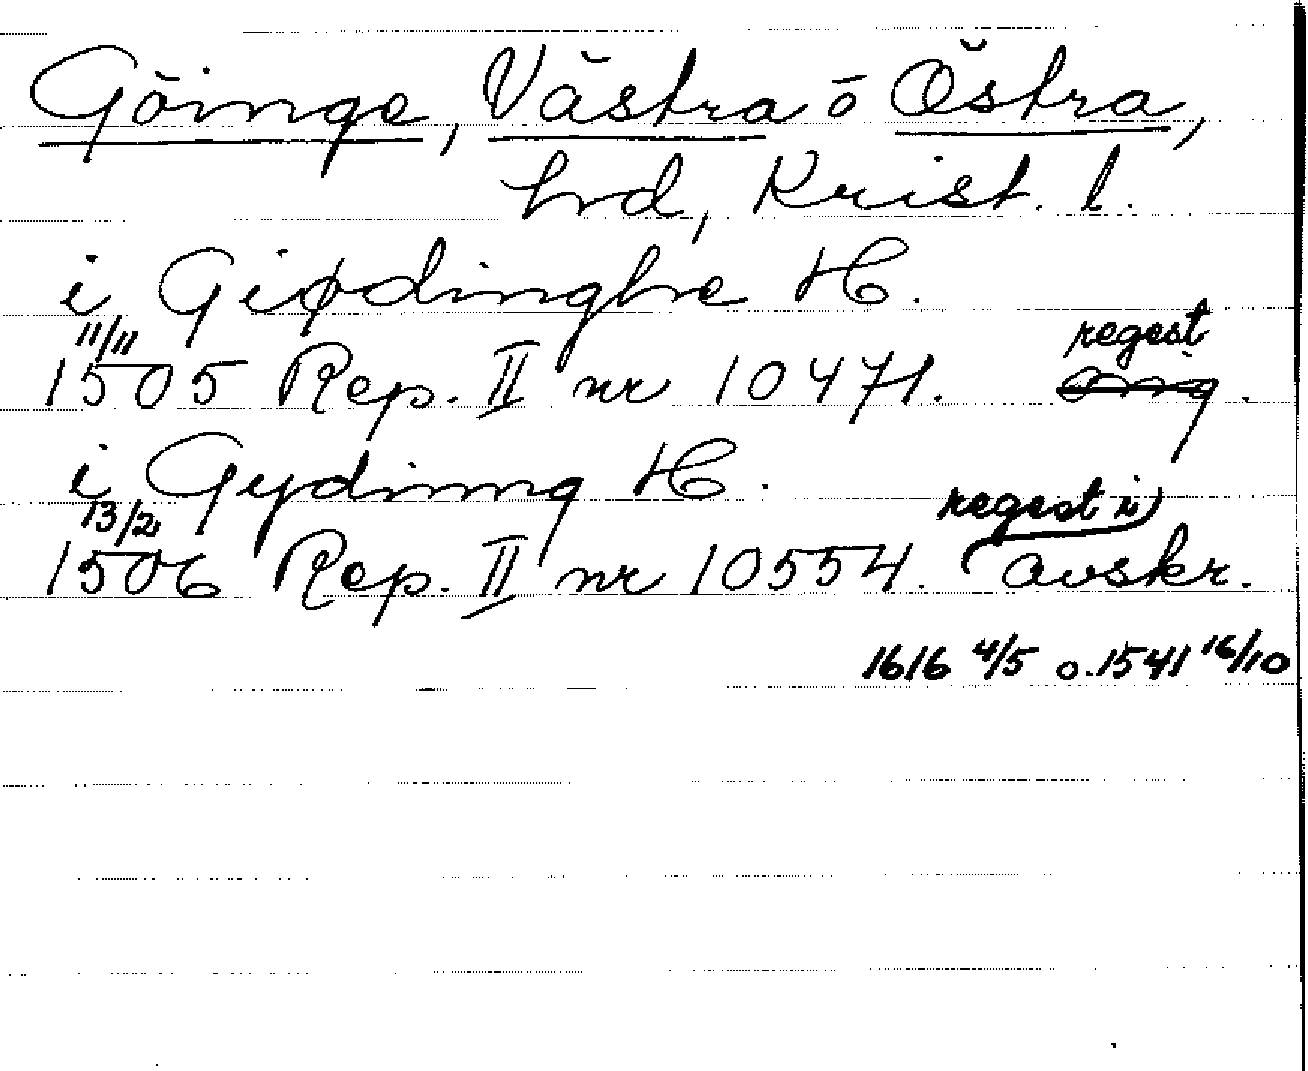 Göinge, Västra o Östra,
hrd, Krist. l.
i Giødinghe H.
11/11 regest
1505 Rep. II nr 10471. orig.
i Gydinng H.
13/2 regest i
1506 Rep. II nr 10554. avskr.
1616 4/5 o. 1541 16/10